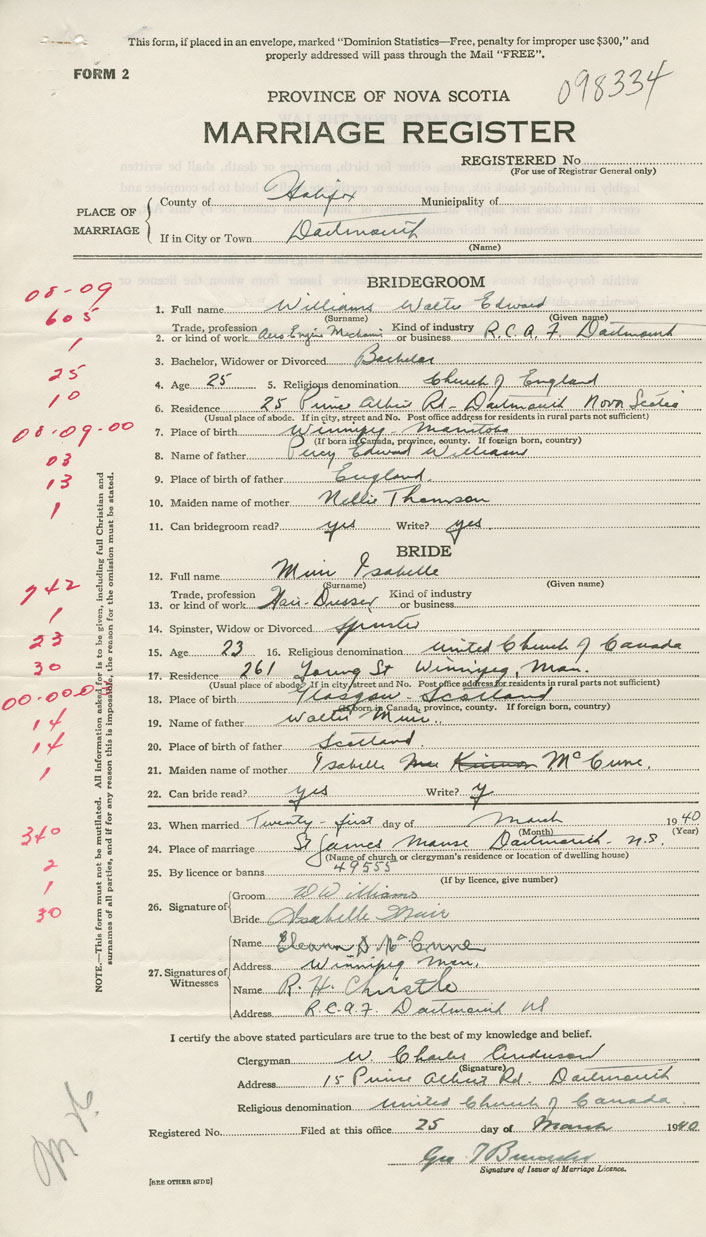 This form, if placed in an envelope, marked "Dominion Statistics—Free, penalty for improper use $300," and
properly addressed will pass through the Mail "FREE".
FORM 2
098334
PROVINCE OF NOVA SCOTIA
MARRIAGE REGISTER
REGISTERED No.
(For use of Registrar General only)
PLACE OF MARRIAGE
County of Halifax Municipality of
If in City or Town Dartmouth
(Name)
BRIDEGROOM
08-09
1. Full name Williams Walter Edward
(Surname) (Given name)
605
Trade, profession Kind of industry
2. or kind of work Aero Engine Mechanic or business R.C.A.F. Dartmouth
1
3. Bachelor, Widower or Divorced Bachelor
25
4. Age 25 5. Religious denomination Church of England
10
6. Residence 25 Prince Albert Rd - Dartmouth Nova Scotia
(Usual place of abode. If in city, street and No. Post office address for residents in rural parts not sufficient)
08-09-00
7. Place of birth Winnipeg - Manitoba
(If born in Canada, province, county. If foreign born, country)
03
8. Name of father Percy Edward Williams
13
9. Place of birth of father England.
10. Maiden name of mother Nellie Thomson
1
11. Can bridegroom read? yes Write? yes.
BRIDE
742
12. Full name Muir Isabelle
(Surname) (Given name)
1
Trade, profession Kind of industry
13. or kind of work Hair-Dresser or business
14. Spinster, Widow or Divorced Spinster
23
15. Age 23 16. Religious denomination United Church of Canada
30
17. Residence 261 Young St Winnipeg, Man.
(Usual place of abode? If in city, street and No. Post office address for residents in rural parts not sufficient)
00-00-00
18. Place of birth Glasgow - Scotland
(If born in Canada, province, county. If foreign born, country)
14
19. Name of father Walter Muir.
14
20. Place of birth of father Scotland.
1
21. Maiden name of mother Isabelle McCune.
22. Can bride read? yes Write? y
340
23. When married Twenty-first day of March 1940
(Month) (Year)
24. Place of marriage St James Manse Dartmouth - N.S.
(Name of church or clergyman's residence or location of dwelling house)
2
25. By licence or banns 49555
(If by licence, give number)
1
26. Signature of Groom W Williams
30
Bride Isabelle Muir
27. Signatures of Witnesses
Name Eleanor D. McCune
Address Winnipeg Man.
Name R. H. Christie
Address R.C.A.F Dartmouth NS
NOTE.—This form must not be mutilated. All information asked for is to be given, including full Christian and
surnames of all parties, and if for any reason this is impossible, the reason for the omission must be stated.
I certify the above stated particulars are true to the best of my knowledge and belief.
Clergyman W. Charles Anderson
(Signature)
Address 15 Prince Albert Rd. Dartmouth
Religious denomination United Church of Canada.
Registered No. Filed at this office 25 day of March 1940
Geo T
Signature of Issuer of Marriage Licence.
[SEE OTHER SIDE]